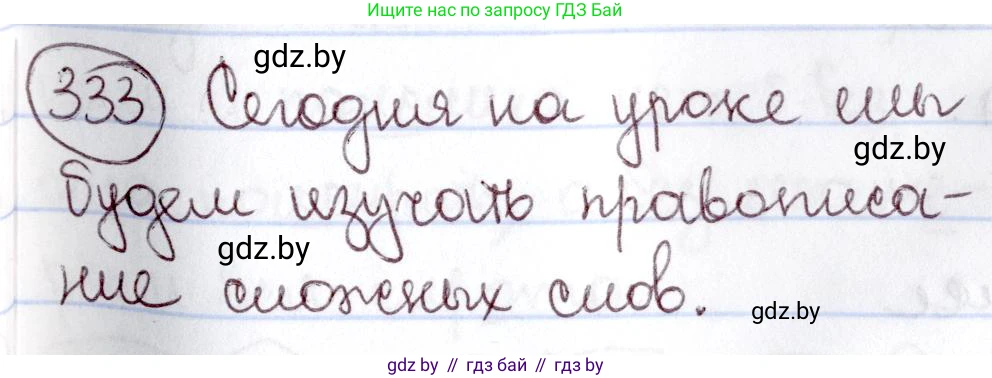 Ищите нас по запросу ГДЗ Бай
gdz.by
333 Сегодня на уроке мы
gdz.by
будем изучать правописа-
gdz.by
ние сложных слов.
gdz.by
gdz.by // гдз бай // gdz.by